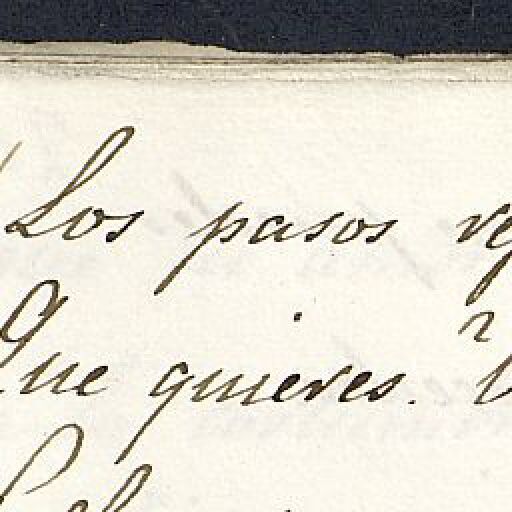 Los pasos
Que quieres.